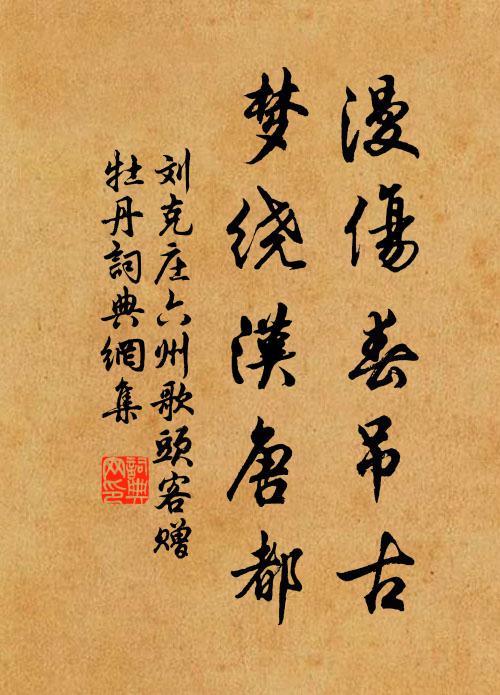 漫傷春吊古
梦绕漢唐都
刘克庄六州歌頭客赠
牡丹詞典網集
詞典
网印